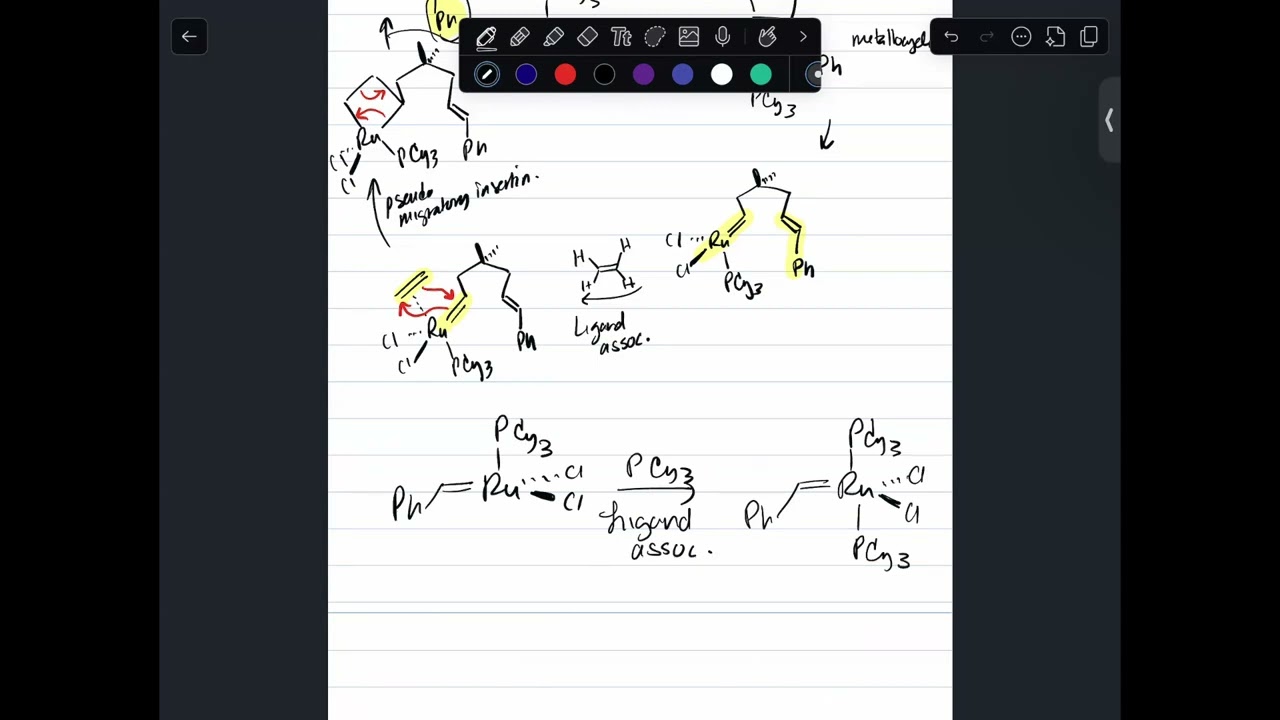 Ph
Tt
metallocycl
Ph
PCy3
Ru
Cl
Cl
PCy3
Ph
pseudo
migratory insertin.
Cl
Ru
Cl
PCy3
Ph
H
H
H
H
Ligand
assoc.
Ru
Cl
Cl
PCy3
Ph
PCy3
Ph
Ru
Cl
Cl
PCy3
Ligand
assoc.
PCy3
Ph
Ru
Cl
Cl
PCy3